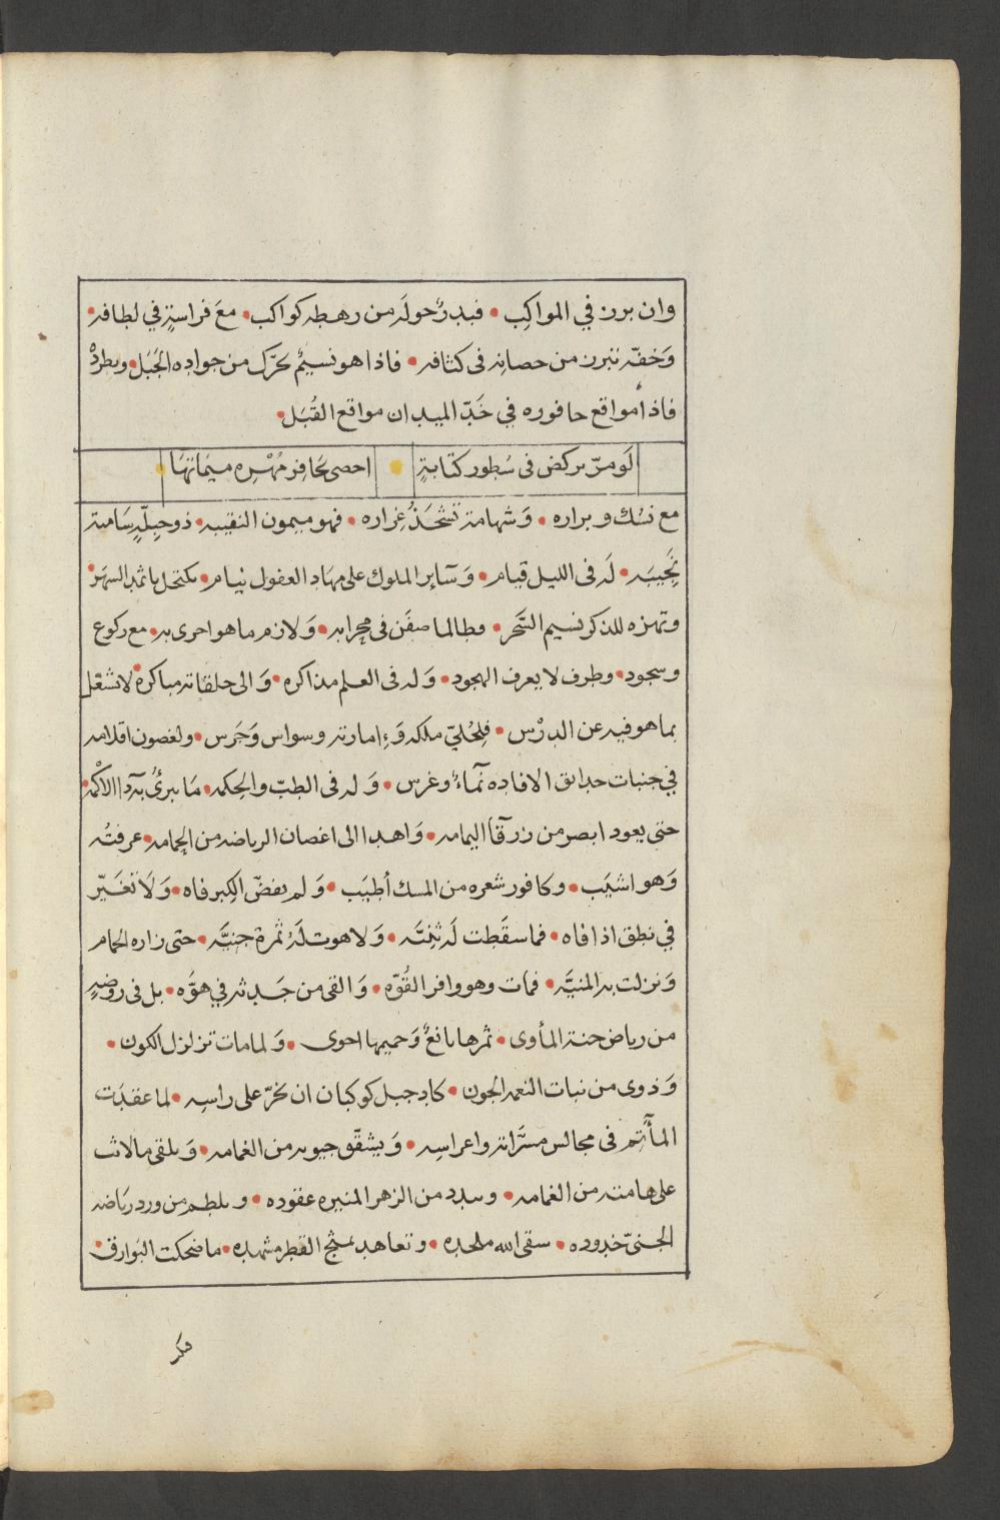 وان برز في المواكب • فبدرٌ حولَه من رهطه كواكب • معَ فراسةٍ في لطافه •
وَخفّه تبرز من حصانه فى كثافه • فاذا هو نسيمٌ تحرّك من جواده الجَبَل • ويطردْ
فاذا مواقع حافوره في خَدّ الميدان مواقع القُبَل •
لَو مرّ يركض فى سُطور كتابةٍ • احصى بحَافِر مُهْرِه ميمَاتهَا •
مع نسُك وبراره • وَشهامة تشحَذُ غِراره • فهو ميمون النقيبه • ذو جبِلّةٍ سَامية
نَجِيبَه • لَه فى الليل قيام • وَسَآير الملوك على مهَاد الغفول نيام • يكتحل باثمد السهَر •
وتهزه للذكر نسيم السَّحر • وطالما صفَن فى محرابه • وَلازم ما هو احرى به • مع ركوع
وسجود • وطرف لا يعرف الهجود • وَله فى العلم مذاكره • وَالى حلقاته مباكره • لا تشغل
بما هو فيه عن الدرْس • فلِحُليّ ملكه وَإمارته وسواس وَجَرس • ولغصون اقلامه
في جنبات حدايق الافاده نَمآءٌ وغرس • وَله فى الطبّ والحِكمه • مَا يبرئُ بهَ دآ الاكْمه •
حتى يعود ابصر من زرقآ اليمامه • وَاهدا الى اغصان الرياضه من الحمامه • عرفتُه
وَهو اشيَب • وكافور شعره من المسك أطيَب • وَلم يفضّ الكِبر فاه • وَلَا تغَيّر
في نطق اذا فاه • فما سقَطت لَه ثنِيَّه • وَلا هوت لَهُ ثمرة جنيَّه • حتى زاره الحمام
وَنزلت به المنيَّه • فمات وهو وافر القُوّه • وَالقى من جَدثه في هوَّه • بل فى روضةٍ
من رياض جنة المأوى • ثمرها يانعٌ وَحميمها احوى • وَلما مات تزلزل الكون •
وَذوى من نبات النعمه الجون • كاد جبل كوكبان ان يخرّ على راسِه • لما عقدَت
المآتم فى مجالس مسَّراته واعراسِه • وَيشقّق جيوبه من الغمامه • وَيلقى ما لاث
على هامته من الغمامه • ويبدد من الزهر المنيره عقوده • ويلطم من ورد ريَاضه
الجنيّ خدوده • سقى الله ملحده • وتعاهد بمثج القطر مشهده • ما ضحكت البَوارق •